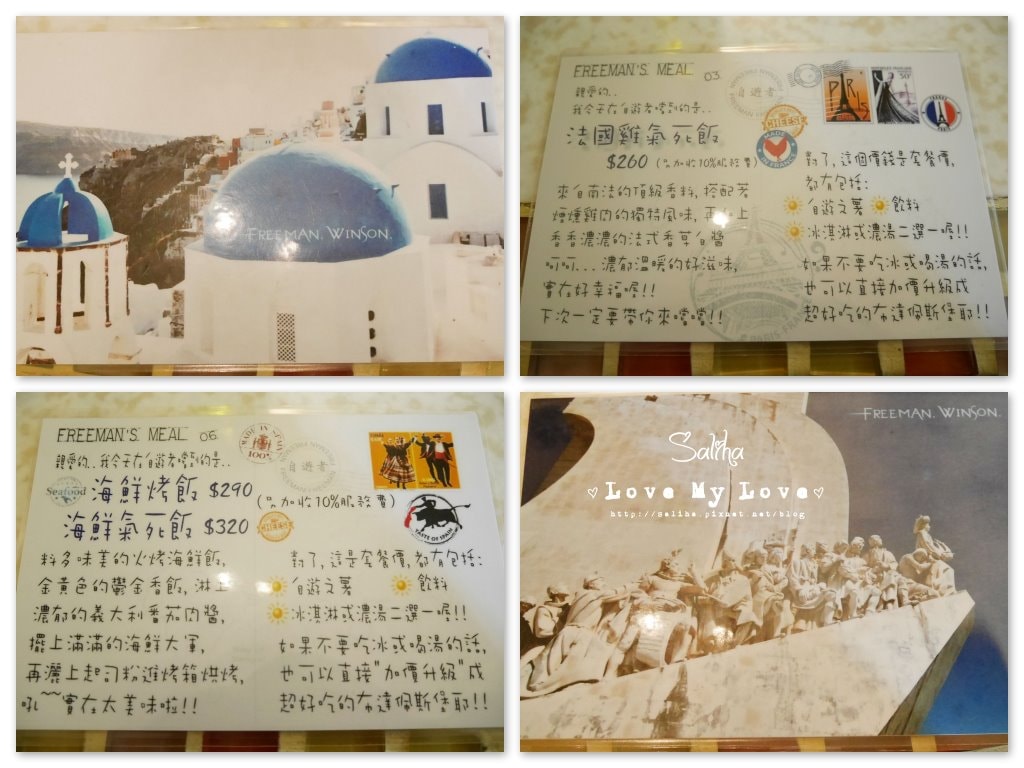 FREEMAN. WINSON.
FREEMAN'S MEAL 03.
親愛的..
我今天在自遊者嚐到的是..
自遊者
法國雞氣死飯
$260 (另加收10%服務費)
來自南法的頂級香料, 搭配著
煙燻雞肉的獨特風味, 再加上
香香濃濃的法式香草白醬
呵呵...濃郁溫暖的好滋味,
實在好幸福喔!!
下次一定要帶你來嚐嚐!!
PARIS
FRANCE
MADE IN FRANCE
對了, 這個價錢是套餐價,
都有包括:
自遊之薯 飲料
冰淇淋或濃湯二選一喔!!
如果不要吃冰或喝湯的話,
也可以直接加價升級成
超好吃的布達佩斯堡耶!!
FREEMAN'S MEAL 06.
親愛的..我今天在自遊者嚐到的是..
MADE IN SPAIN
100%
自遊者
Seafood
海鮮烤飯 $290
(另加收10%服務費)
海鮮氣死飯 $320
TASTE OF SPAIN
料多味美的火烤海鮮飯,
金黃色的鬱金香飯, 淋上
濃郁的義大利番茄肉醬,
擺上滿滿的海鮮大軍,
再灑上起司粉進烤箱烘烤,
吼~~實在太美味啦!!
對了, 這是套餐價, 都有包括:
自遊之薯 飲料
冰淇淋或濃湯二選一喔!!
如果不要吃冰或喝湯的話,
也可以直接"加價升級"成
超好吃的布達佩斯堡耶!!
FREEMAN. WINSON.
Saliha
Love My Love
http://saliha.pixnet.net/blog